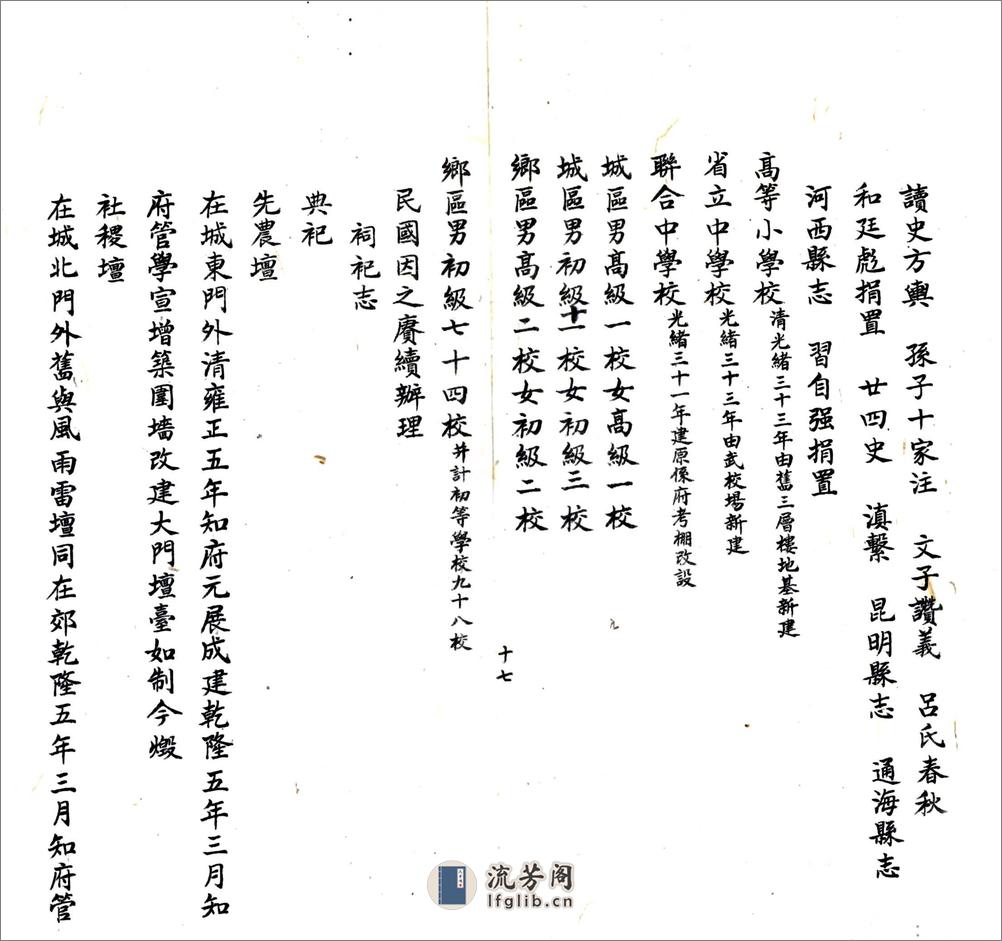 讀史方輿　孫子十家注　文子讚義　呂氏春秋
和廷彪捐置　廿四史　滇繫　昆明縣志　通海縣志
河西縣志　習自强捐置
高等小學校清光緒三十三年由舊三層樓地基新建
省立中學校光緒三十三年由武校場新建
聯合中學校光緒三十一年建原係府考棚改設
城區男高級一校女高級一校
城區男初級十一校女初級三校
鄉區男高級二校女初級二校
十七
鄉區男初級七十四校并計初等學校九十八校
民國因之賡續辦理
祠祀志
典祀
先農壇
在城東門外清雍正五年知府元展成建乾隆五年三月知
府管學宣增築圍墻改建大門壇臺如制今燬
社稷壇
在城北門外舊與風雨雷壇同在郊乾隆五年三月知府管
流芳阁
lfglib.cn